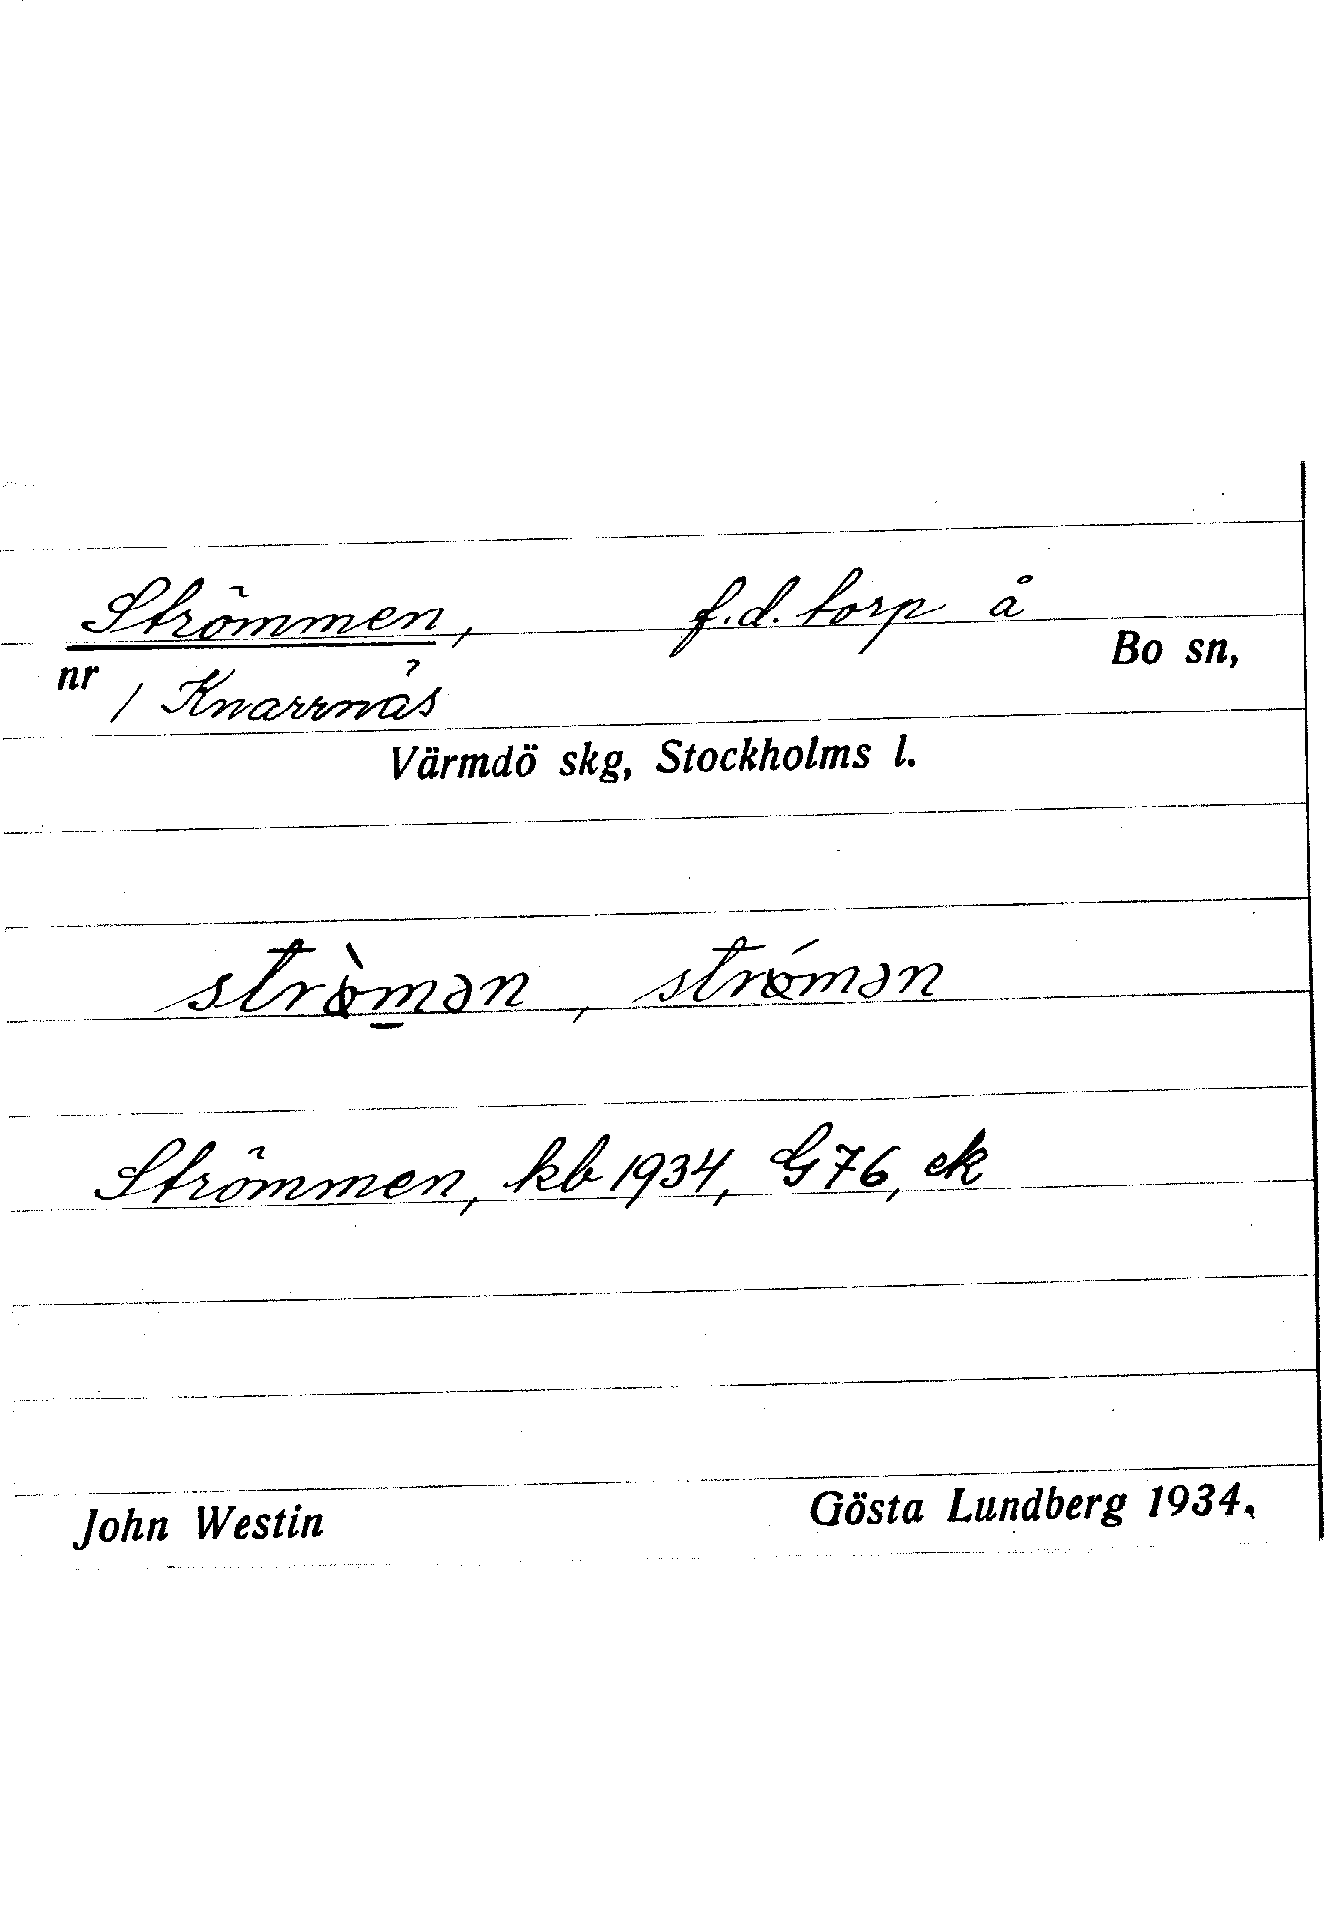 Strömmen, f.d. torp å Bo sn,
nr 1 Knarrnäs
Värmdö skg, Stockholms l.
strø̀mən, strǿmən
Strömmen, kb 1934, G76, ek
John Westin Gösta Lundberg 1934.